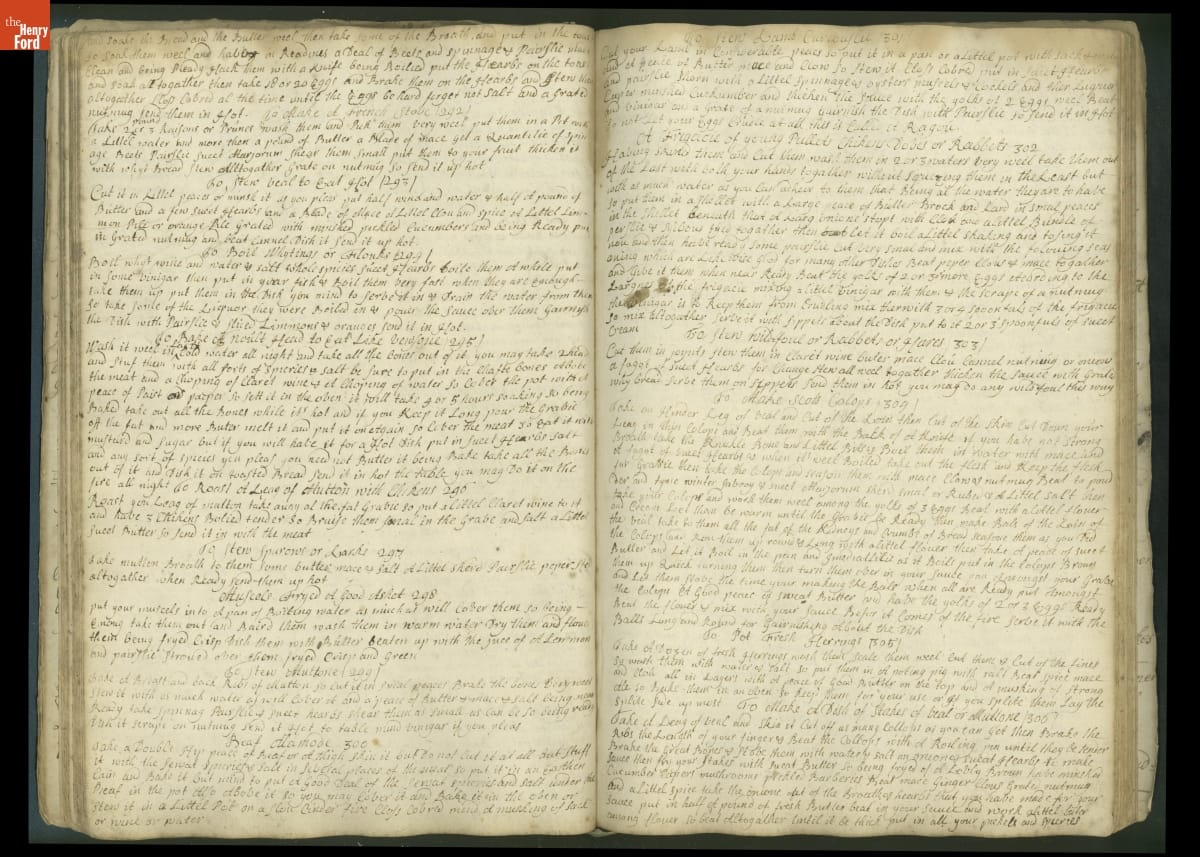 the Henry Ford
and soake the Bread and the Butter weel then take some of the Broath and put in the
to soak them weel and habe in Readines a Deal of Beets and spinnage & Pairslie
Clean and being Ready Hack them with a knife being Boiled put the Hearbs on the tost
and soak altogether then take 18 or 20 Eggs and Brake them on the Hearbs and Stew
altogether Closs Cobred al the time untill the Eggs be hard forget not salt and a Grated
nutmeg send them in Hot. To Make a French Stove 292
Take 2 or 3 pound Reasons or Prunes wash them and Pick them Very weel put them in a Pot with
a Littel water and more then a pound of Butter a Blade of mace get a Quantitie of Spin
age Beets Pairslie sweet Marjorum shear them small put them to your fruit thicken it
with whyt Bread stew alltogather Grate on nutmug so send it up hot
To Stew Veal to Eat Hot 293
Cut it in Littel peaces or minsh it as you pleas put half wine and water & half a pound of
Butter and a few sweet Hearbs and a Blade of Mace a Littel Clou and spice a Littel Lim
mon Pile or orange Pile Grated with minshed pickled Cucumbers and being Ready put
in Grated nutmug and beat Cannel Dish it send it up hot
To Boil Whytings or Hadoks 294
Boil whyt wine and water & salt whole spices sweet Hearbs boile them a while put
in some vinigar then put in your fish & Boil them very fast when they are enough
take them up put them in the Dish you mind to serbe it in & Drain the water from them
so take some of the Liquor they were Boiled in & pour the sauce ober them Gairnish
the Dish with Pairslie & slised Limmons & oranges send it in Hot.
To Bake a Nouts Head to Eat Like Venisone 295
Wash it weel in Cold water all night and take all the bones out of it you may take 2 heads
and stuf them with all sorts of spiceries & salt be sure to put in the Chafte bones abobe
the meat and a Choping of Claret wine & a Choping of water so Cober the pot with a
peace of Past or paeper so sett it in the oben it will take 4 or 5 hours soaking so being
Baked take out all the Bones while it's hot and if you keep it Long pour the Grabie
off the fat and more Buter melt it and put it one again so Cober the meat so Eat it with
mustard and sugar but if you will habe it for a Hot Dish put in sweet Hearbs salt
and any sort of species you pleas you need not Butter it being Bake take all the Bones
out of it and Dish it on toasted Bread send it in hot to the table you may Do it on the
fire all night To Roast a Leag of Mutton with Chikens 296
Roast you Leag of mutton take away all the fat Grabie so put a Littel Claret wine to it
and habe 3 Chikens Boiled tender so Bruise them small in the Grabe and salt a Littel
sweet Butter so send it in with the meat
To Stew Sparows or Larks 297
Take mutton Broath to them some butter mace & salt a Littel shord Pairslie peper
altogather when Ready send them up hot
Musels Fryed a Good Ashot 298
put your muscels into a pan of Boileing water as much as will Cober them so being
Enough take them out and Baird them wash them in warm water Dry them and flour
them being fryed Crisp Dish them with Butter beaten up with the juce of a Lemmon
and pairslie stroued ober them fryed Crisp and Green
To Stew Muttone 299
Take a Breast and back Ribs of Mutton so Cut it in smal peaces Brake the bones very weel
stew it with as much water as will Cober it and a peace of Butter & mace & salt being near
Ready take spinnag Pairslie & sweet hearbs shear them as small as Can be so being ready
Dish it scrape on nutmug send it Hot to table mind vinigar if you pleas
Beaf Alamode 300
Take a Double Hip peace of Beaf or a thigh skin it but Do not Cut it at all but stuff
it with the seberal spiceries & salt in Seberal places of the meat so put it in an Earthen
Cain and Bake it but mind to put a Good Deal of the seberal spiceries and salt under the
Beeaf in the pot Also abobe it so you may Cober it and Bake it in the oben or
stew it in a Littel Pot on a slow Cinder fire Closs Cobred mind a mushking of Sack
or wine or water
To Stew Lamb Curiouslie 301
Cut your Lamb in Conveneable peaces so put it in a pan or a Littel pot with sack
and a peace of Butter mace and Clow so Stew it Closs Cobred put in sweet Hearbs
and pairslie shorn with a Littel Spinnage & oysters musels & Cockels and ther Liquor
Caper minshed Cuckumber and thicken the sauce with the yolks of 2 Eggs weel Beat
in vinigar and a Grate of a nutmug Gairnish the Dish with Pairslie so send it in Hot
Do not Let your Eggs Crudle at all this is Called a Ragou.
A Frigacie of young Pullets Chickens Dobes or Rabbets 302
Habing skined them and Cut them wash them in 2 or 3 waters very weel take them out
of the Last with both your hands togather without squizing them in the Least but
with as much water as you Can adheir to them that Being all the water they are to habe
so put them in a skellet with a Large peace of Butter Brock and Laid in smal peaces
in the skellet beneath that a Larg onione stopt with Clow and a Littel Bundle of
per Pile & Nibous tyed togather then let it boil a Littel shaking and tosing it
now and then habe ready some pairslie Cut very smal and mix with the following seas
oning which are Likewise good for many other Dishes Beat peper Clows & mace togather
and Gibe it them when near Ready Beat the yolks of 2 or 3 or more Eggs according to the
Largnes of the frigacie mixing a Littel vinigar with them & the scrape of a nutmug
the vinigar is to keep them from Crudling mix them with 3 or 4 spoonfuls of the frigacie
so mix altogather serbe it with sippets about the Dish put to it 2 or 3 spoonfuls of sweet
Cream To Stew Wildfoul or Rabbets or Hares 303
Cut them in joynts stew them in Claret wine buter mace Clou Cannel nutmug or onions
a fagot of sweet Hearbs for Change stew all weel togather thicken the sauce with Grate
whyt bread serbe them on sippets send them in hot you may do any wildfoul this way
To Make Scots Colops 304
Take an Hinder Leg of Veal and Cut of the Loin then Cut of the Skin Cut Down your
Lean in thin Colops and Beat them with the Back of a knife if you habe not strong
Broath take the knuckle Bone and Littel Bitts & Boill them in water with mace and
a fagot of sweet Hearbs when it's weel Boiled take out the flesh and keep the flesh
for Grabie then take the Colops and season them with mace Claws & nutmug Beat to poud
der and tyme winter sabory & sweet Marjorum shorn small or Rubed & a Littel salt then
take your Colops and work them weel among the yolks of 3 Eggs Beat with a Littel flower
and Cream Let them be warm until the Grabie be Ready then make Balls of the Lean of
the veal take to them all the fat of the kidneys and Crumbs of Bread seasone them as you Did
the Colops and Roul them up round & Long with a Littel flower then take a peace of sweet
Butter and Let it Boil in the pan and imediatlie as it Boils put in the Colops Broun
them up Quick turning them then turn them ober in your sauce pan amongst your Grabie
and Let them stobe the time your making the Balls when all are Ready put amongst
the Colops A Good peace of sweat Butter and habe the yolks of 2 or 3 Eggs Ready
Beat the flower & mix with your sauce Befor it Comes of the fire serbe it with the
Balls Long and Round for Gairnishing about the Dish
To Pot Fresh Herrings 305
Take a Dozen of fresh Herrings wash them scale them weel Gut them & Cut of the fines
so wash them with water & salt so put them in a poting pig with salt Beat spice mace
and Clou all in Layers with a peace of Good Butter on the top and a mushking of strong
ale so Bake them in an oben so keep them for your use or if you split them Lay the
splite side up most To Make a Dish of Stakes of Veal or Muttone 306
Take a Leag of Veal and skin it Cut off as many Collops as you Can get then Brake the
Ribs the Length of your finger & Beat the Collops with a Rolling pin until they be tender
Brake the Great Bones & stobe them with water & salt an onione & sweat Hearbs to make
sauce then fry your stakes with sweat Butter so being fryed of a Lobly Broun habe minshed
Cucumber Capers mushrooms pickled Barberies Beat mace Ginger Clous Grated nutmug
and a Littel spice take the onione out of the Broath & hearbs that you habe made for your
sauce put in half a pound of fresh Butter beat in your sauce and work a Littel buter
among flower so beat altogather until it be thick put in all your pickels and spiceries